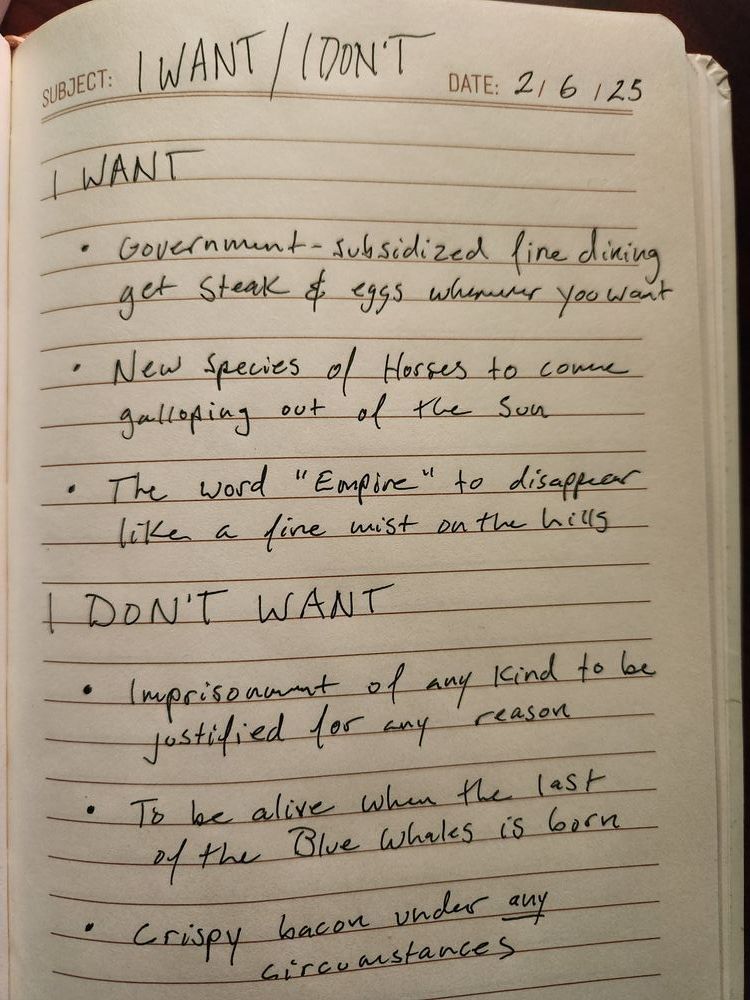 SUBJECT: I WANT / I DON'T DATE: 2/6/25
I WANT
• Government-subsidized fine dining
get steak & eggs whenever you want
• New species of Horses to come
galloping out of the Sun
• The word "Empire" to disappear
like a fine mist on the hills
I DON'T WANT
• Imprisonment of any kind to be
justified for any reason
• To be alive when the last
of the Blue Whales is born
• Crispy bacon under any
circumstances